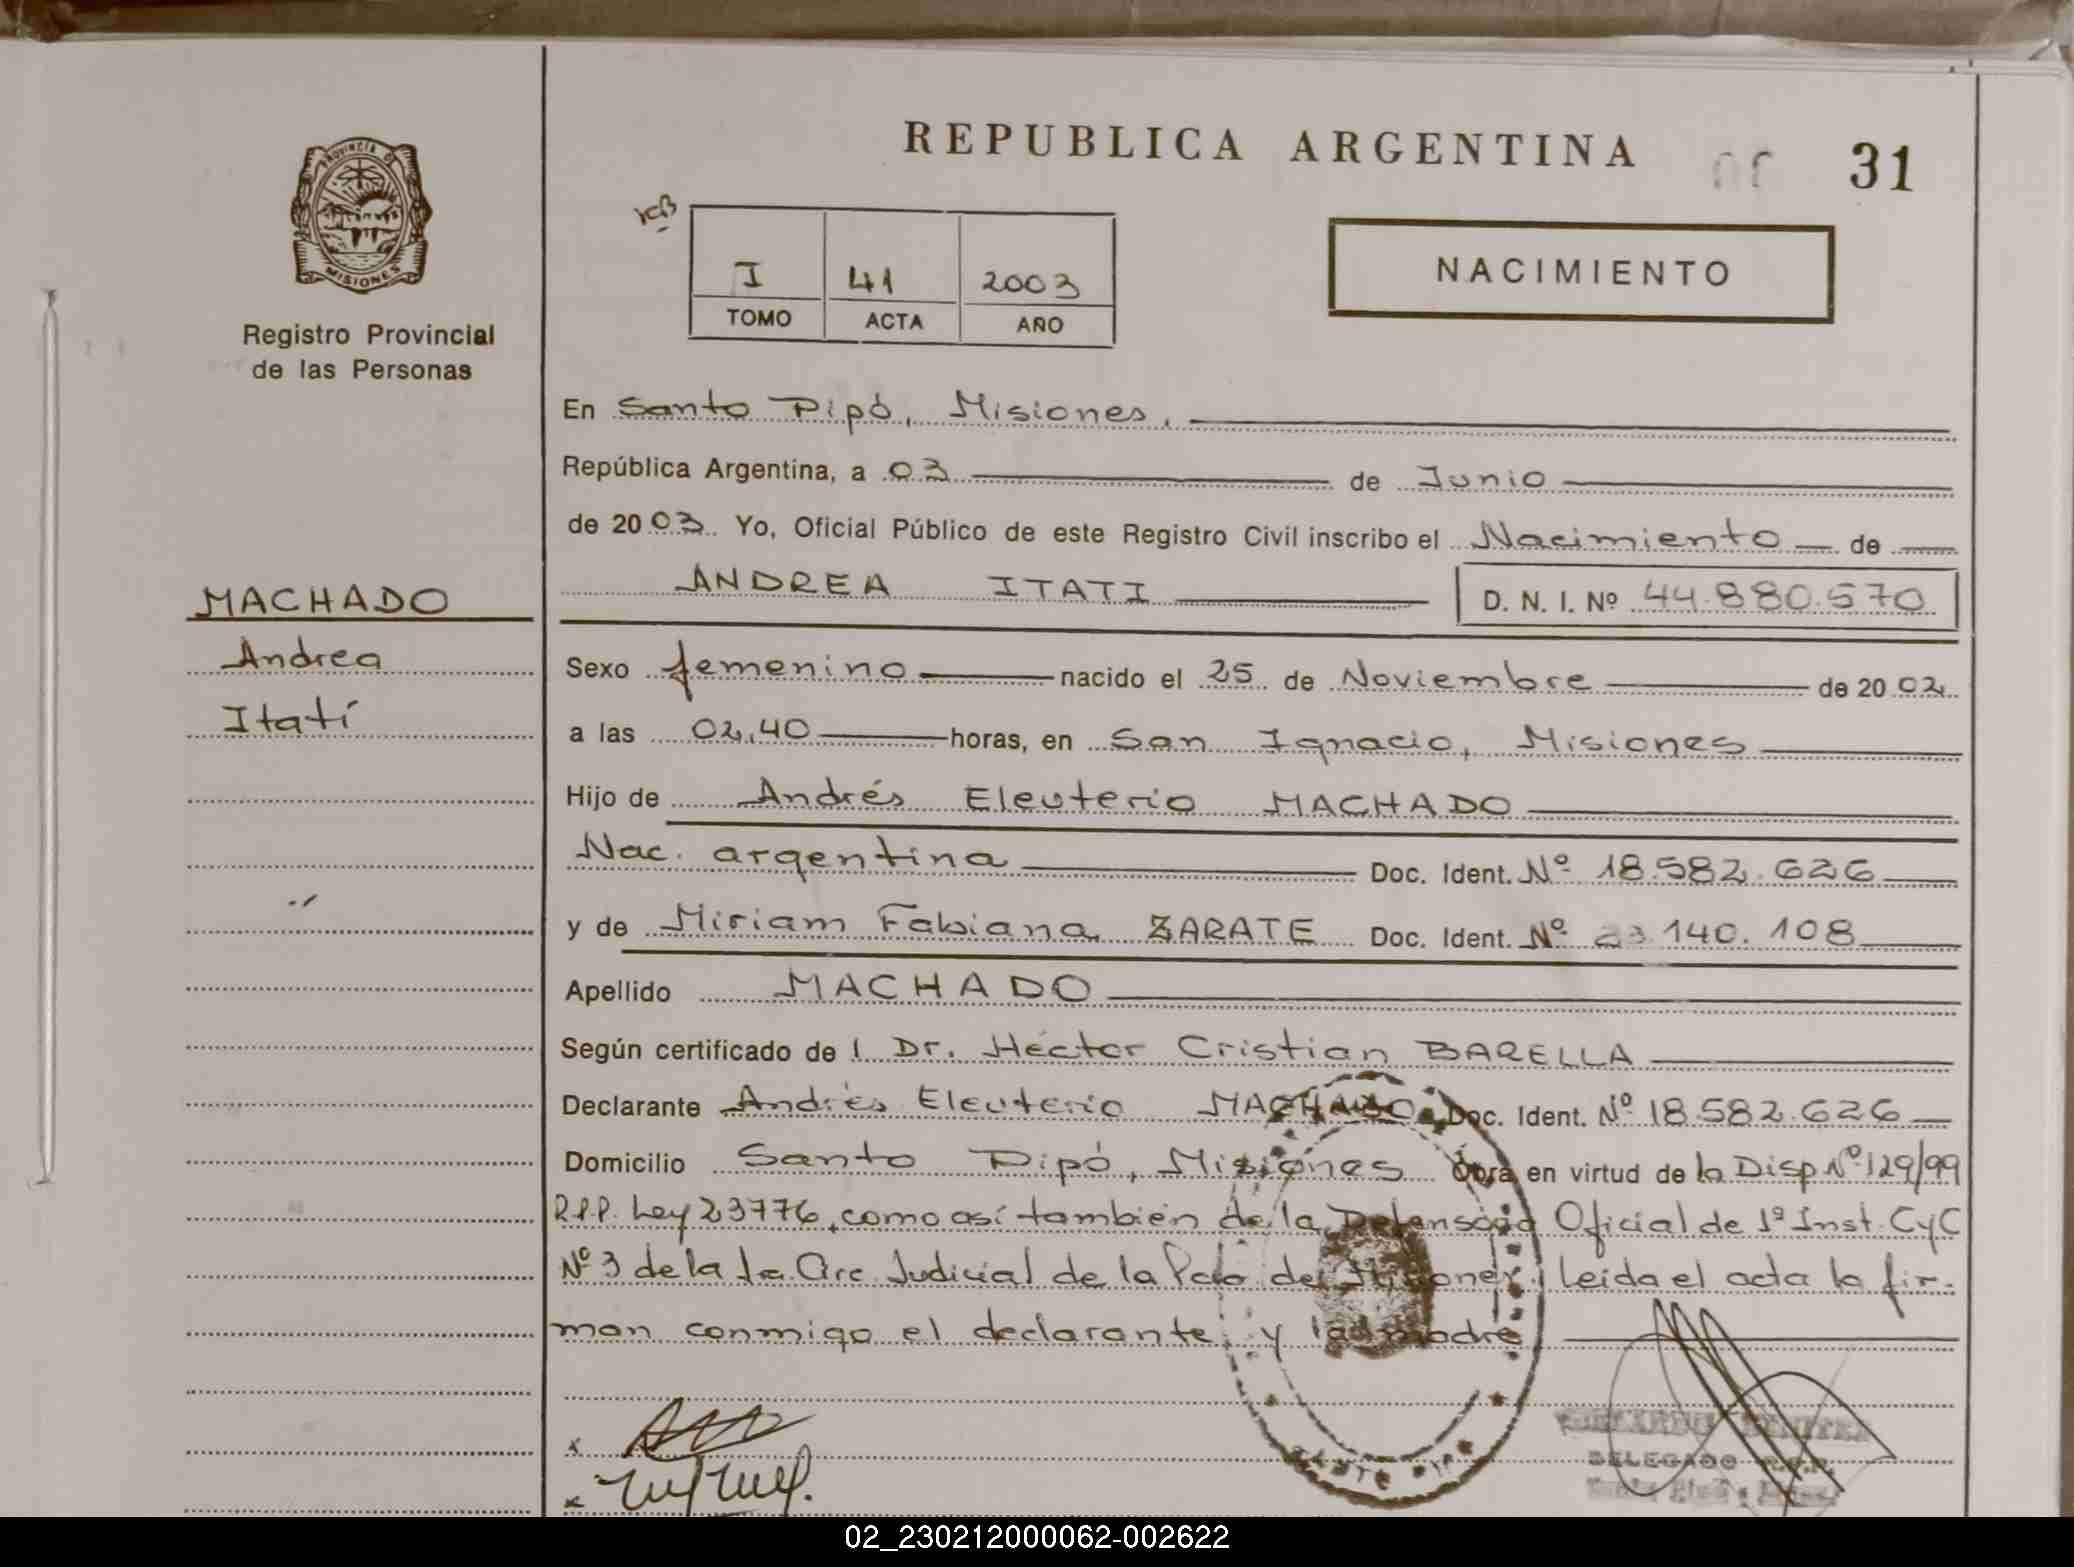 REPUBLICA ARGENTINA
31
PROVINCIA DE
MISIONES
Registro Provincial
de las Personas
I 41 2003
TOMO ACTA AÑO
NACIMIENTO
En Santo Pipó, Misiones,
República Argentina, a 03 de Junio
de 2003 Yo, Oficial Público de este Registro Civil inscribo el Nacimiento de
ANDREA ITATI D. N. I. Nº 44.880.570
MACHADO
Andrea
Itatí
Sexo femenino nacido el 25 de Noviembre de 2002
a las 02,40 horas, en San Ignacio, Misiones
Hijo de Andrés Eleuterio MACHADO
Nac. argentina Doc. Ident. Nº 18.582.626
y de Miriam Fabiana ZARATE Doc. Ident. Nº 23.140.108
Apellido MACHADO
Según certificado de l Dr. Héctor Cristian BARELLA
Declarante Andrés Eleuterio MACHADO Doc. Ident. Nº 18.582.626
Domicilio Santo Pipó, Misiones Obra en virtud de la Disp Nº 129/99
R.P.P. Ley 23776, como así también de la Defensoría Oficial de 1º Inst. CyC
Nº 3 de la 1ra Circ. Judicial de la Pcia de Misiones, Leída el acta la fir-
man conmigo el declarante y la madre
DELEGADO R.P.P.
02_230212000062-002622